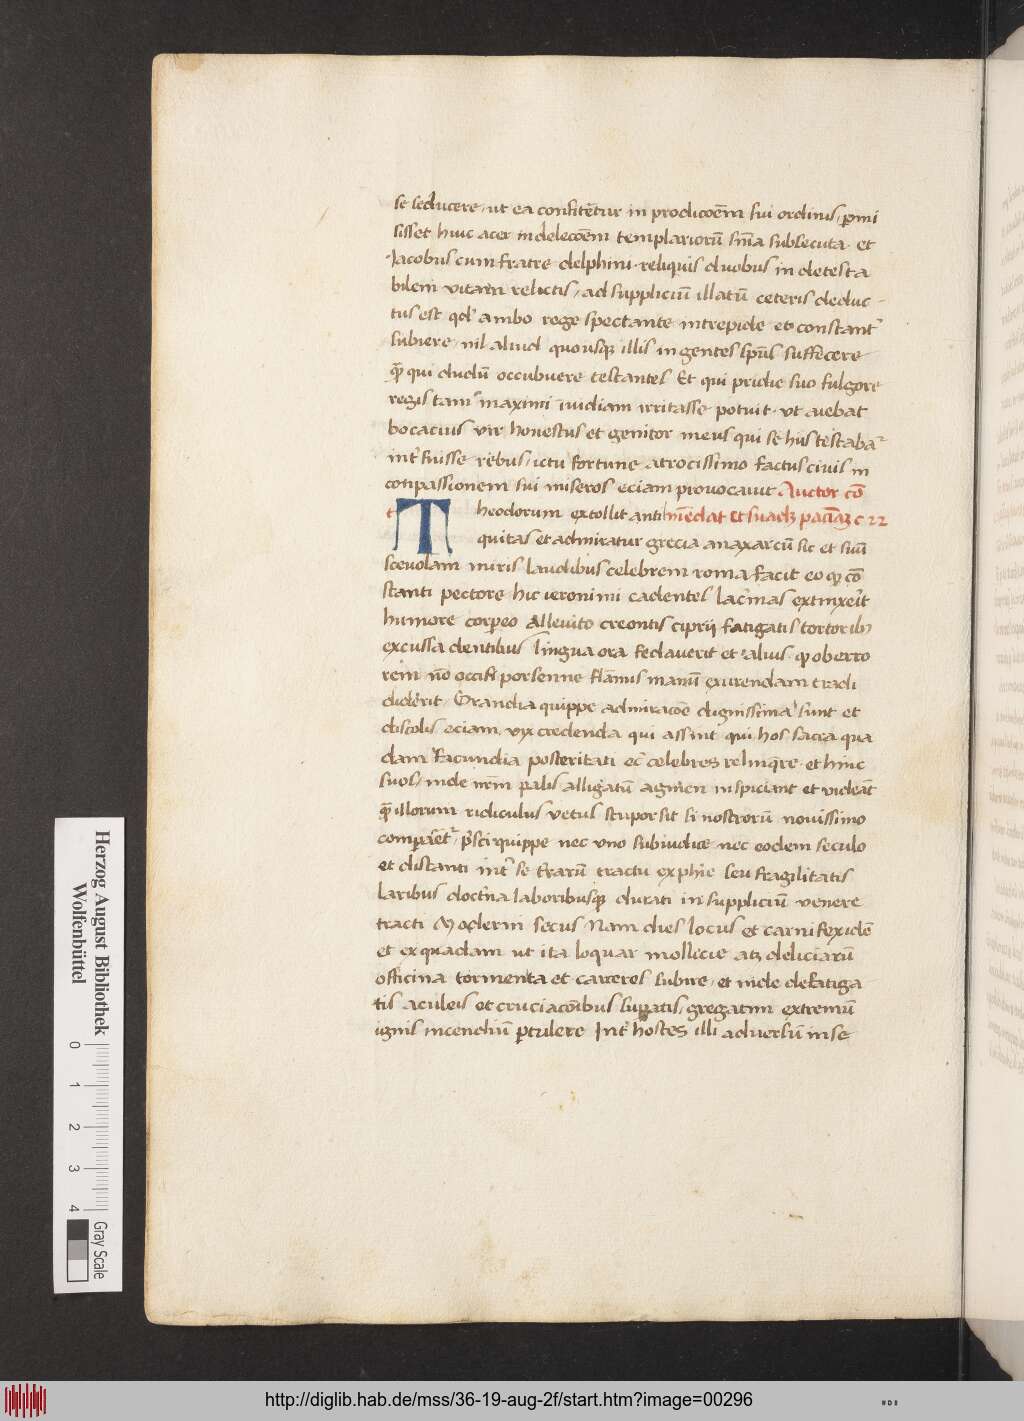 se seducere, ut ea confitētur in prodicōēm sui ordinis, pmi
sisset huic acer in delecōēm templariorū sn̄ia subsecuta. et
Jacobus cum fratre delphini. reliquis duobus in detesta
bilem vitam relictis, ad suppliciū illatū ceteris deduc-
tus est qd' ambo rege spectante intrepide et constant
subiere, nil aliud quousq illis ingentes sp̄us suffecere
q̄ qui dudū occubuere testantes Et qui pridie suo fulgore
regis tam maximi īuidiam irritasse potuit. ut aiebat
bocacius vir honestus et genitor meus qui se hiis testaba
int fuisse rebus, ictu fortune atrocissimo factus civis in
conpassionem sui miseros eciam provocavit Auctor cō
Theodorum extollit anti mēdat et suadꝫ paciāꝫ c 22
quitas et admiratur grecia anaxarcū sic et suū
scevolam miris laudibus celebrem roma facit eo q cō
stanti pectore hic ieronimi cadentes lacīmas extinxe'it
humore corpeo Alleuito creontis ciprij fatigatis tortorib
excussa dentibus lingua ora fedaverit et alius. q ob erro
rem nō occisi porsenne flāmis manū exurendam tradi
diderit. Grandia quippe admiracōe dignissima sunt et
discolis eciam vix credenda qui assint qui hos sacra qua
dam facundia posteritati ec celebres relinq̄re. et hinc
suos, inde nr̄m palis alligatū agmen inspiciant et videāt
q̄ illorum ridiculus vetus stupor sit si nostrorū novissimo
comparēt, pr̄sci quippe nec uno sub iudice nec eodem seculo
et distanti int se trarū tractu ex phīe seu fragilitatis
laribus doctīna laboribusq durati in suppliciū venere
tracti Moderni secus Nam dies locus et carnifex idē
et ex quadam ut ita loquar mollicie atꝫ deliciarū
officina tormenta et carceres subire, et inde defatiga
tis aculeis et cruciacōibus supatis, gregatim extremū
ignis incendiū ptulere Int hostes illi adversū in se
Herzog August Bibliothek
Wolfenbüttel
0 1 2 3 4
Gray Scale
http://diglib.hab.de/mss/36-19-aug-2f/start.htm?image=00296